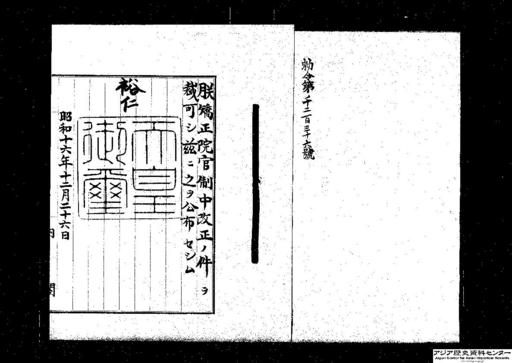 勅令第千二百三十六號
朕矯正院官制中改正ノ件ヲ
裁可シ茲ニ之ヲ公布セシム
裕仁
天皇
御璽
昭和十六年十二月二十六日
内閣
アジア歴史資料センター
Japan Center for Asian Historical Records